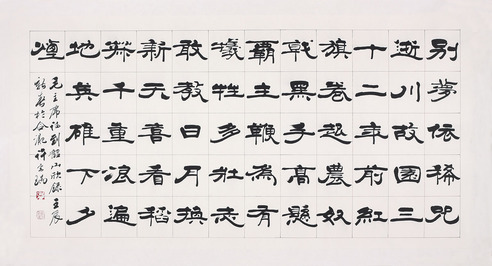 别夢依稀咒
逝川故園三
十二年前紅
旗卷起農奴
戟黑手高懸
霸主鞭為有
犧牲多壯志
敢教日月換
新天喜看稻
菽千重浪遍
地英雄下夕
煙
毛主席詩到韶山 壬辰
新春於合肥